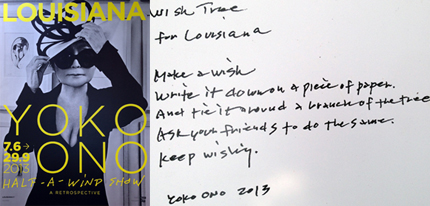 LOUISIANA
YOKO
ONO
7.6→
29.9
2013
HALF-A-WIND SHOW
A RETROSPECTIVE
Wish Tree
for Louisiana
Make a wish
Write it down on a piece of paper.
And tie it around a branch of the tree
Ask your friends to do the same.
Keep wishing.
YOKO ONO 2013